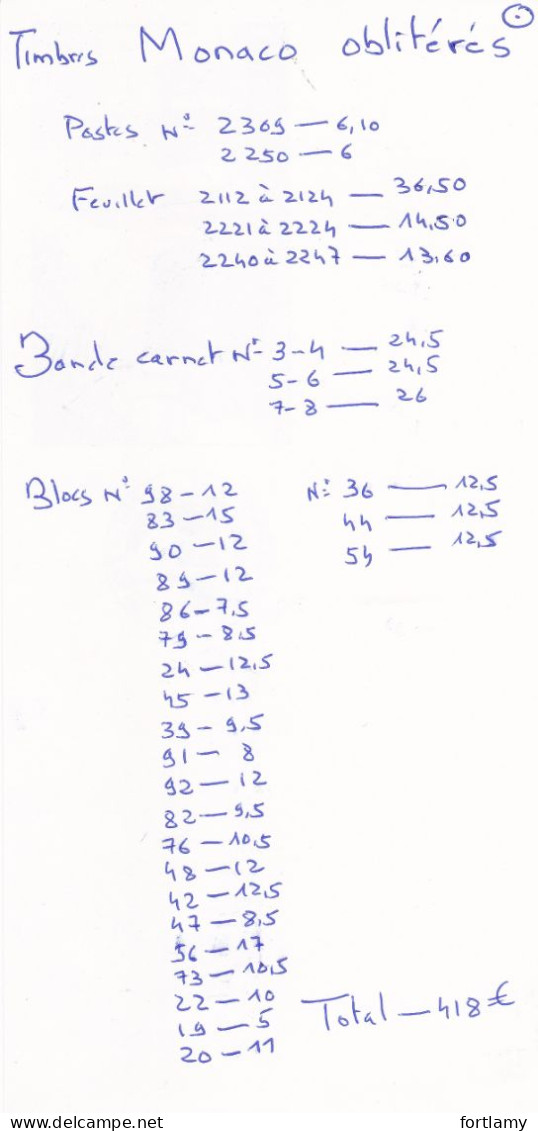 Timbres Monaco oblitérés
Postes N° 2369 — 6,10
2250 — 6
Feuillet 2112 à 2124 — 36,50
2221 à 2224 — 14,50
2240 à 2247 — 13,60
Bande carnet N° 3-4 — 24,5
5-6 — 24,5
7-8 — 26
Blocs N° 98 - 12
83 - 15
90 - 12
89 - 12
86 - 7,5
79 - 8,5
24 - 12,5
45 - 13
39 - 9,5
91 - 8
92 - 12
82 - 9,5
76 - 10,5
48 - 12
42 - 12,5
47 - 8,5
56 - 17
73 - 10,5
22 - 10
19 - 5
20 - 11
N° 36 — 12,5
44 — 12,5
54 — 12,5
Total — 418€
www.delcampe.net
fortlamy